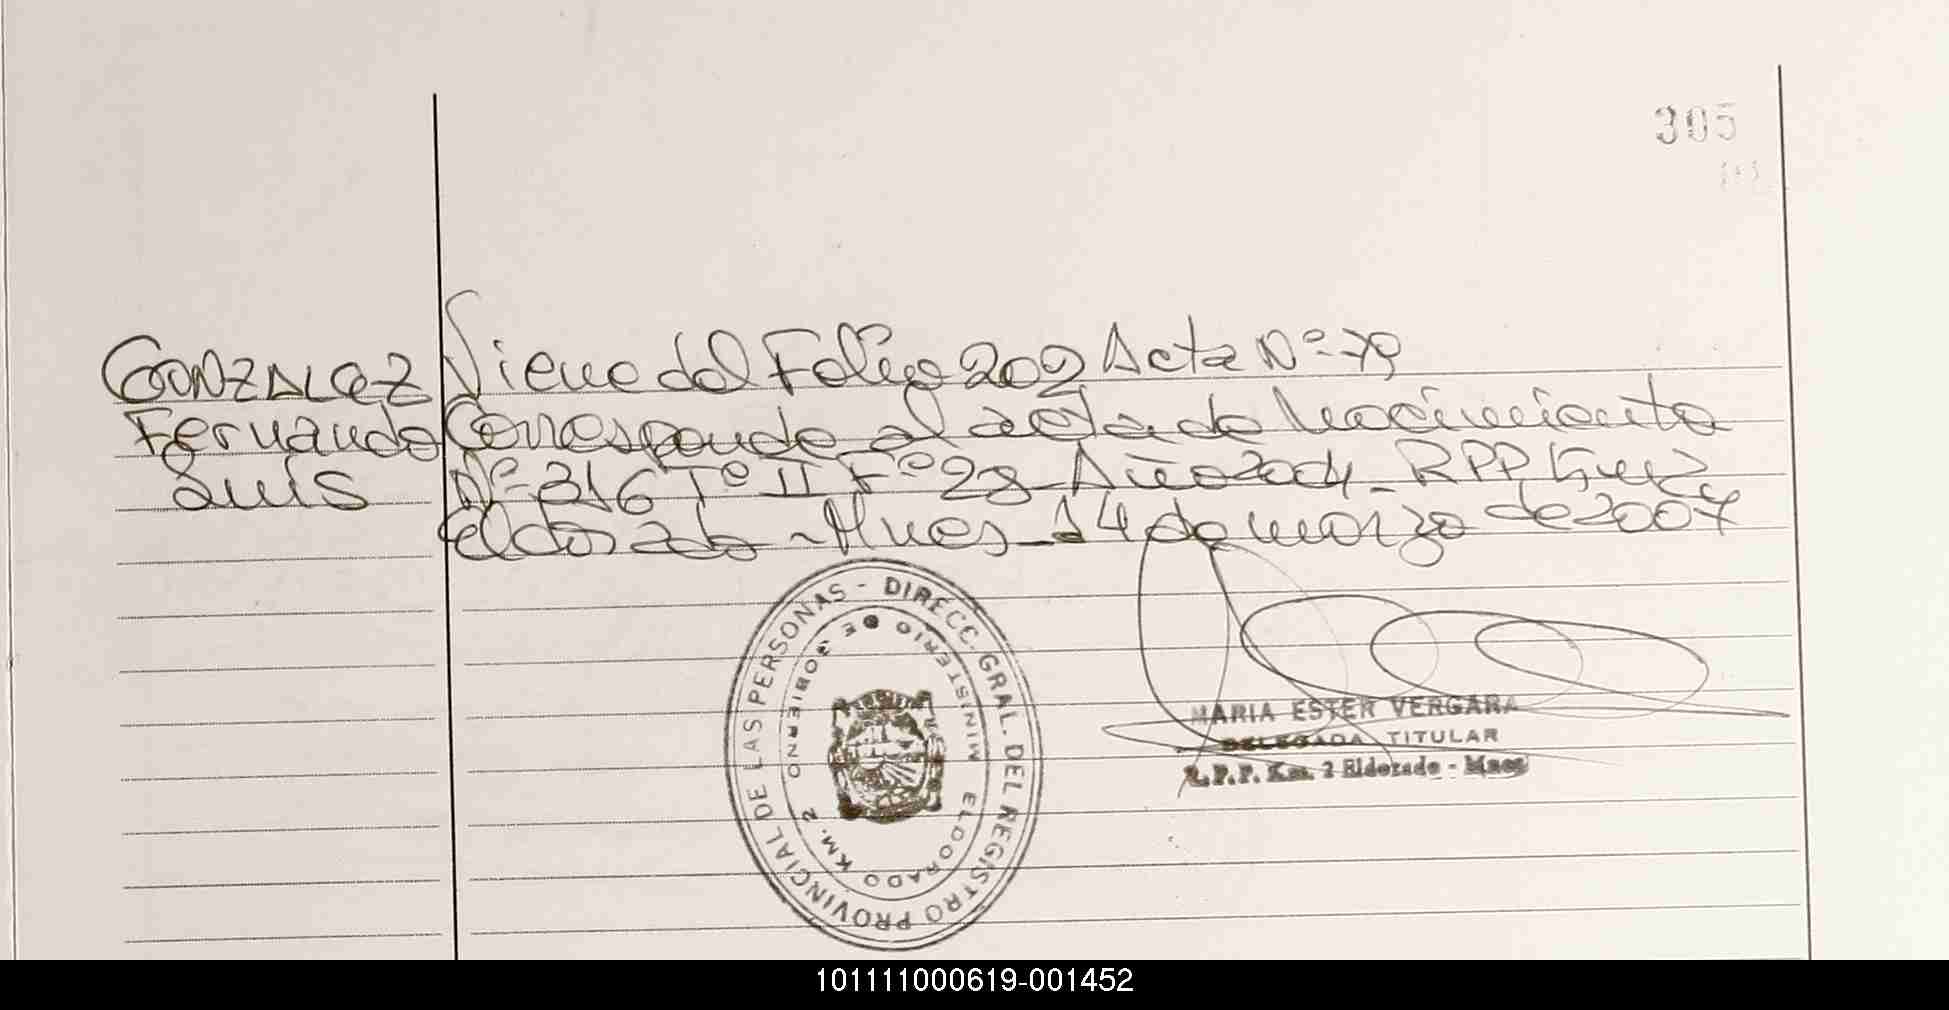 305
GONZALEZ
Fernando
Luis
Viene del Folio 202 Acta Nº 79
Corresponde al acta de Nacimiento
Nº 316 Tº II Fº 28 Año 2004 - RPP
Eldorado - Mnes - 14 de marzo de 2007
DIRECC. GRAL. DEL REGISTRO PROVINCIAL DE LAS PERSONAS -
MINISTERIO DE GOBIERNO
ELDORADO KM. 2
MARIA ESTER VERGARA
DELEGADA TITULAR
R.P.P. Km. 2 Eldorado - Mnes
101111000619-001452